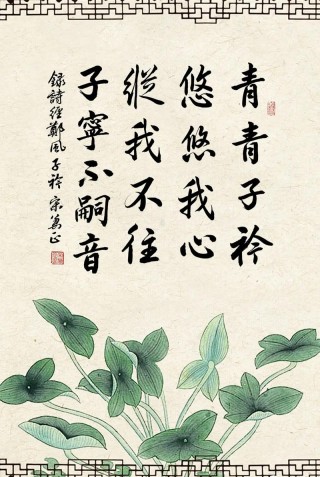 青青子衿
悠悠我心
縱我不往
子寧不嗣音
錄詩經鄭風子衿